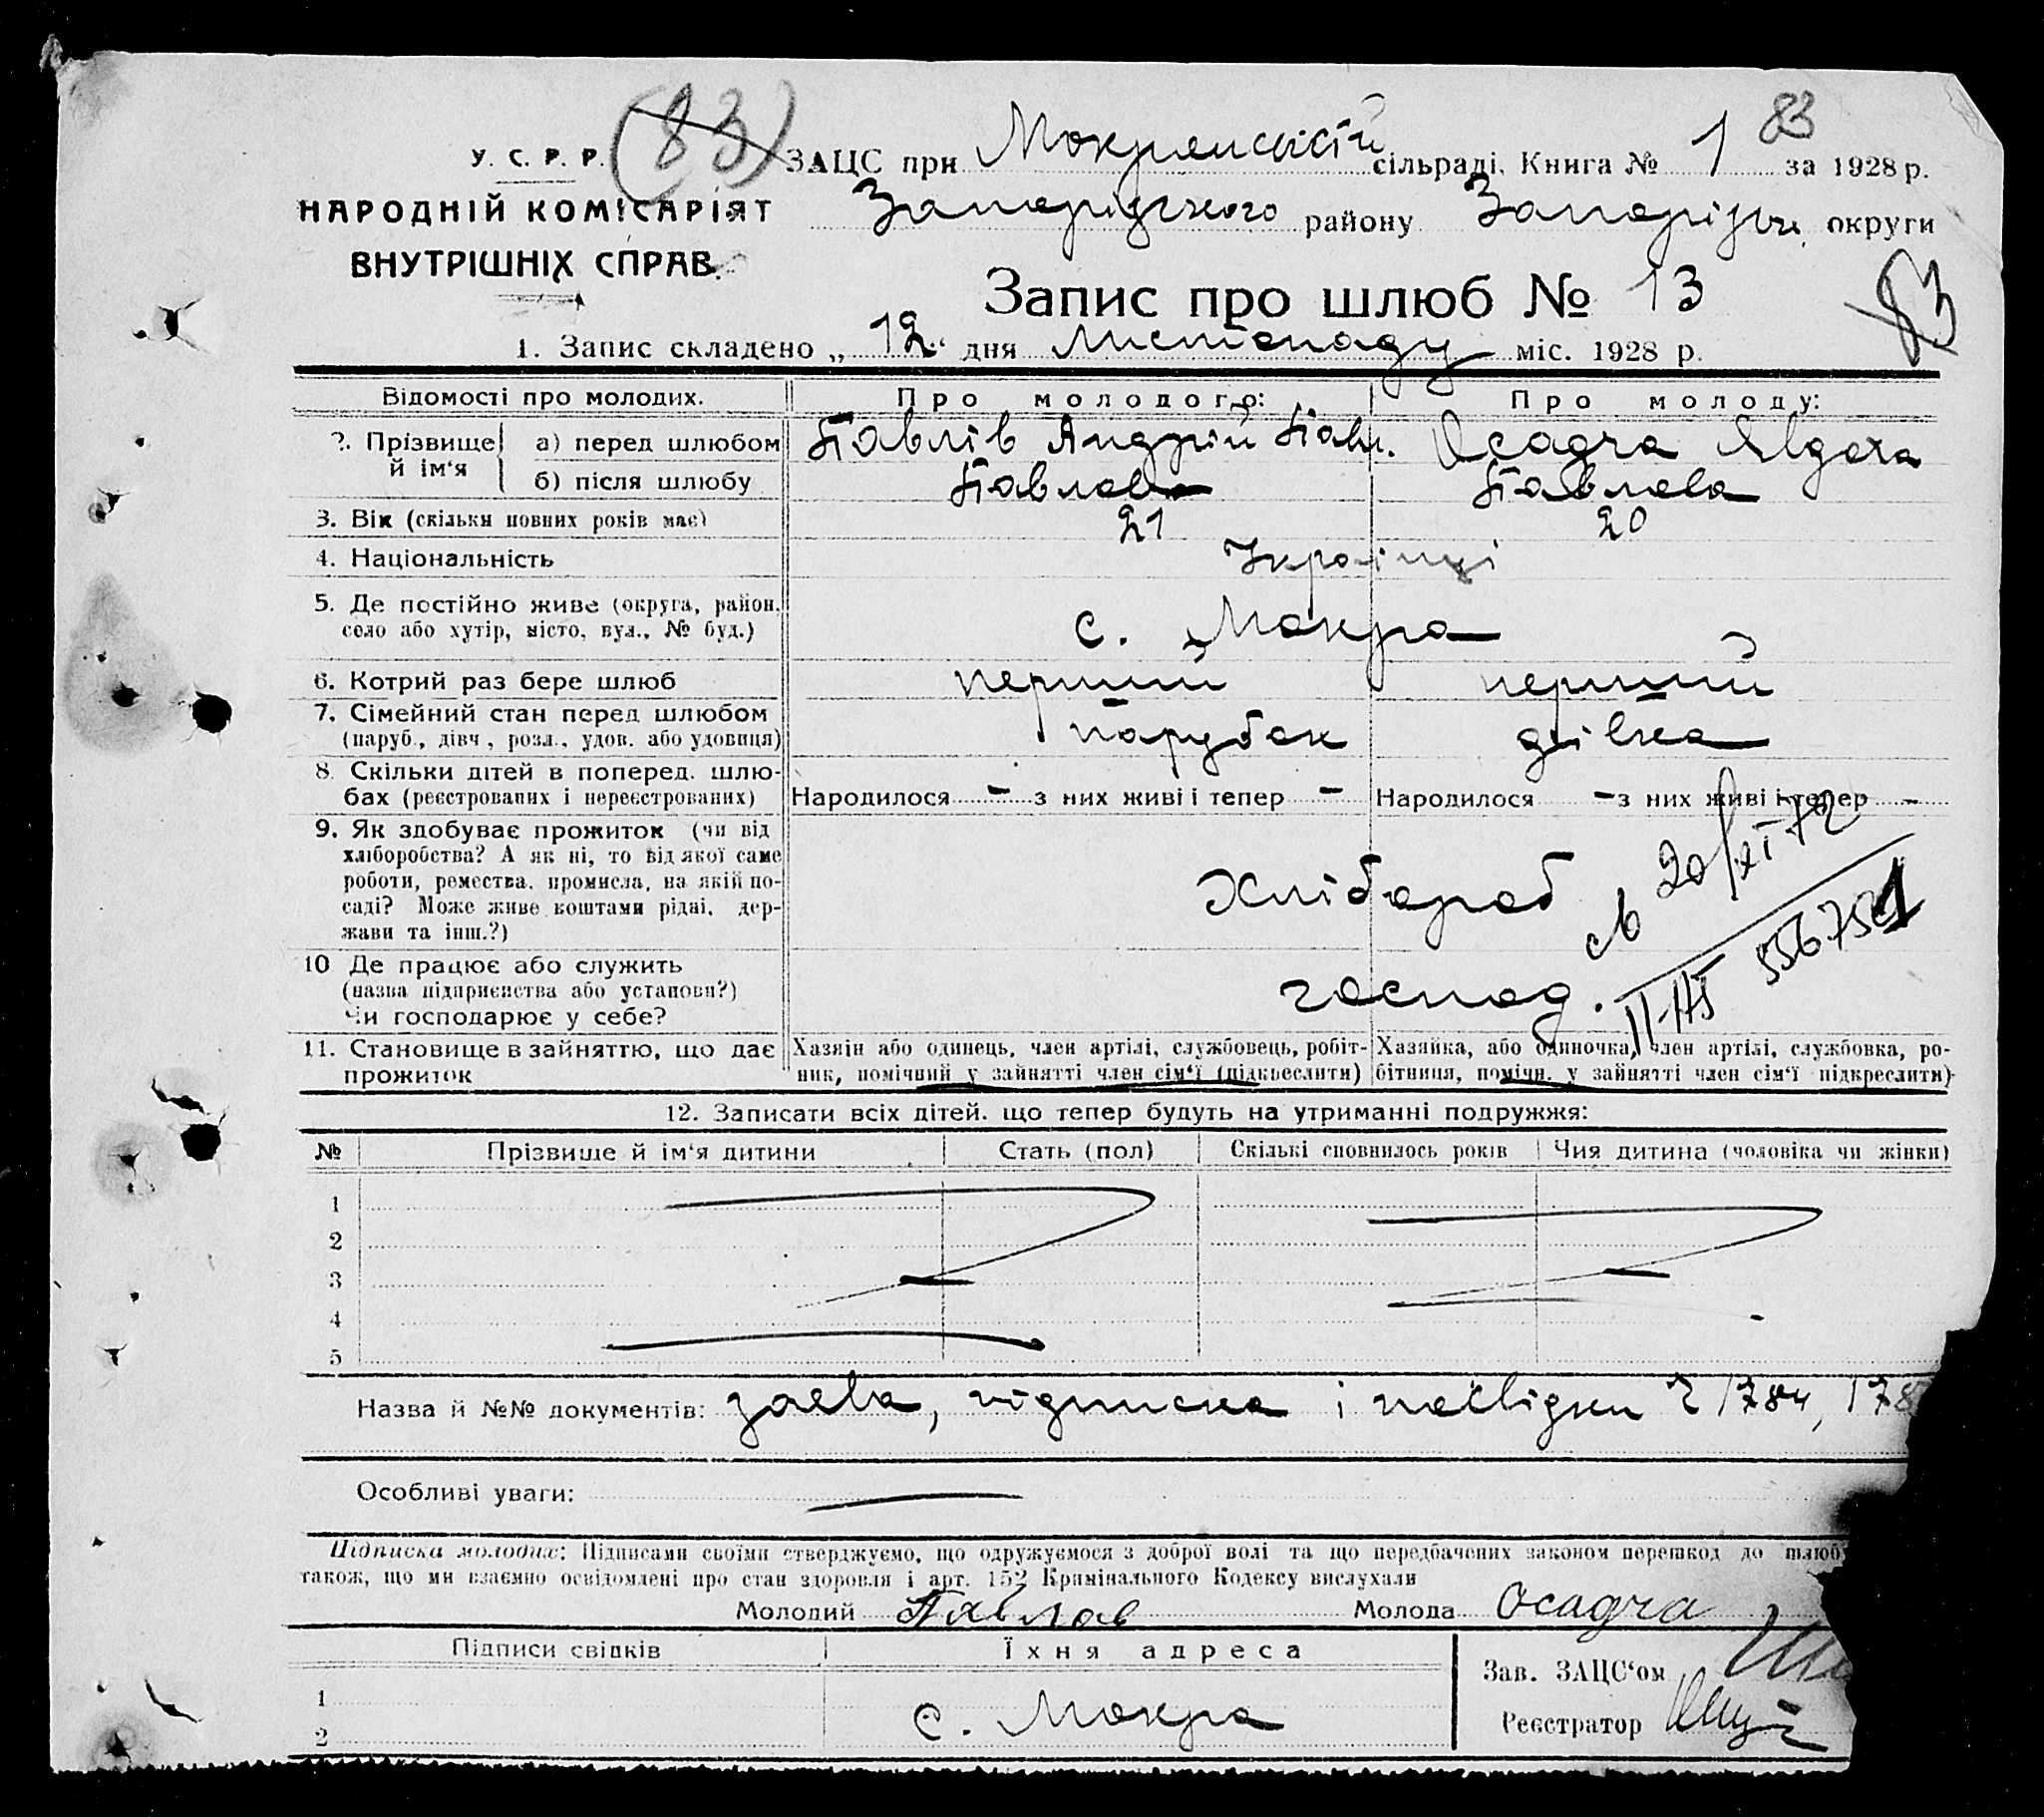 (83)
83
У. С. Р. Р. ЗАЦС при Мокрянській сільраді. Книга № 1 за 1928 р.
НАРОДНІЙ КОМІСАРІЯТ Запорізького району Запорізьк. округи
ВНУТРІШНІХ СПРАВ.
83
Запис про шлюб № 13
1. Запис складено „12" дня листопаду міс. 1928 р.
Відомості про молодих. Про молодого: Про молоду:
2. Прізвище й ім'я а) перед шлюбом Павлів Андрій Павл. Осадча Явдоха
б) після шлюбу Павлов Павлова
3. Вік (скільки повних років має) 21 20
4. Національність Українці
5. Де постійно живе (округа, район,
село або хутір, місто, вул., № буд.) с. Мокра
6. Котрий раз бере шлюб перший перший
7. Сімейний стан перед шлюбом
(паруб., дівч., розл., удов. або удовиця) парубок дівка
8. Скільки дітей в поперед. шлю-
бах (реєстрованих і нереєстрованих) Народилося — з них живі і тепер — Народилося — з них живі і тепер —
9. Як здобуває прожиток (чи від
хліборобства? А як ні, то від якої саме
роботи, ремества, промисла, на якій по-
саді? Може живе коштами рідні, дер-
жави та інш.?)
Хлібороб
20/XI-72
II-ЖБ 556752
10 Де працює або служить
(назва підприємства або установи?)
Чи господарює у себе?
господ.
11. Становище в зайняттю, що дає
прожиток
Хазяін або одинець, член артілі, службовець, робіт-
ник, помічний у зайнятті член сім'ї (підкреслити)
Хазяйка, або одиночка, член артілі, службовка, ро-
бітниця, помічн. у зайнятті член сім'ї підкреслити)
12. Записати всіх дітей, що тепер будуть на утриманні подружжя:
№ Прізвище й ім'я дитини Стать (пол) Скількі сповнилось років Чия дитина (чоловіка чи жінки)
1
2
3
4
5
Назва й №№ документів: заява, підписка і посвідки 1784, 178
Особливі уваги: —
Підписка молодих: Підписами своїми стверджуємо, що одружуємося з доброї волі та що передбачених законом перешкод до шлюбу
також, що ми взаємно освідомлені про стан здоровля і арт. 152 Кримінального Кодексу вислухали
Молодий Павлов Молода Осадча
Підписи свідків Їхня адреса
Зав. ЗАЦС'ом
1
с. Мокра
2
Реєстратор